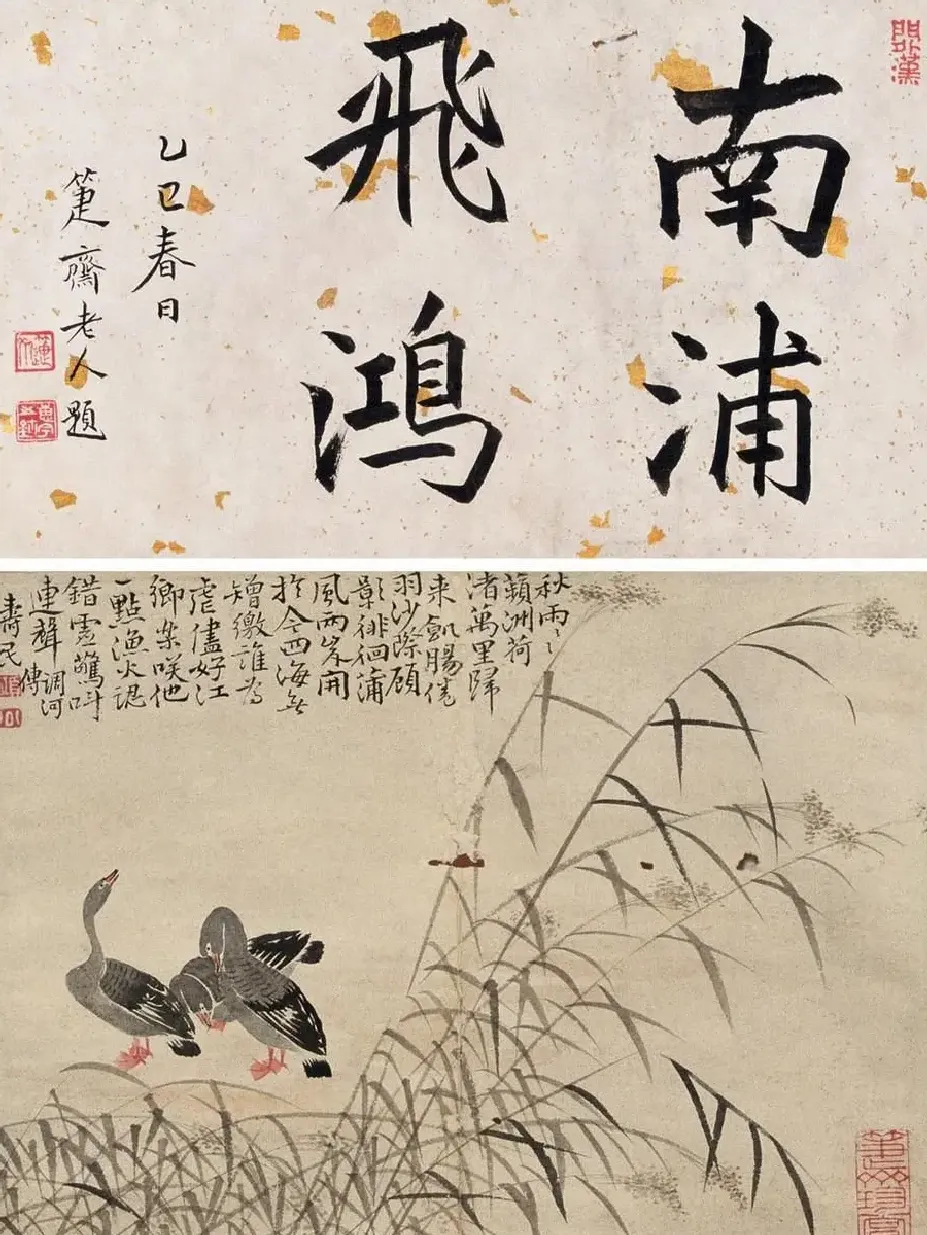 門外漢
南浦
飛鴻
乙巳春日
箑齋老人題
秋雨〻
蘋洲荷
渚萬里歸
來飢腸倦
羽沙際顧
影徘徊蒲
風兩岸開
於今四海無
矰繳誰為
虐儘好江
鄉樂咲他
一點漁火認
錯虛驚叫
連聲 調河
傳
壽民